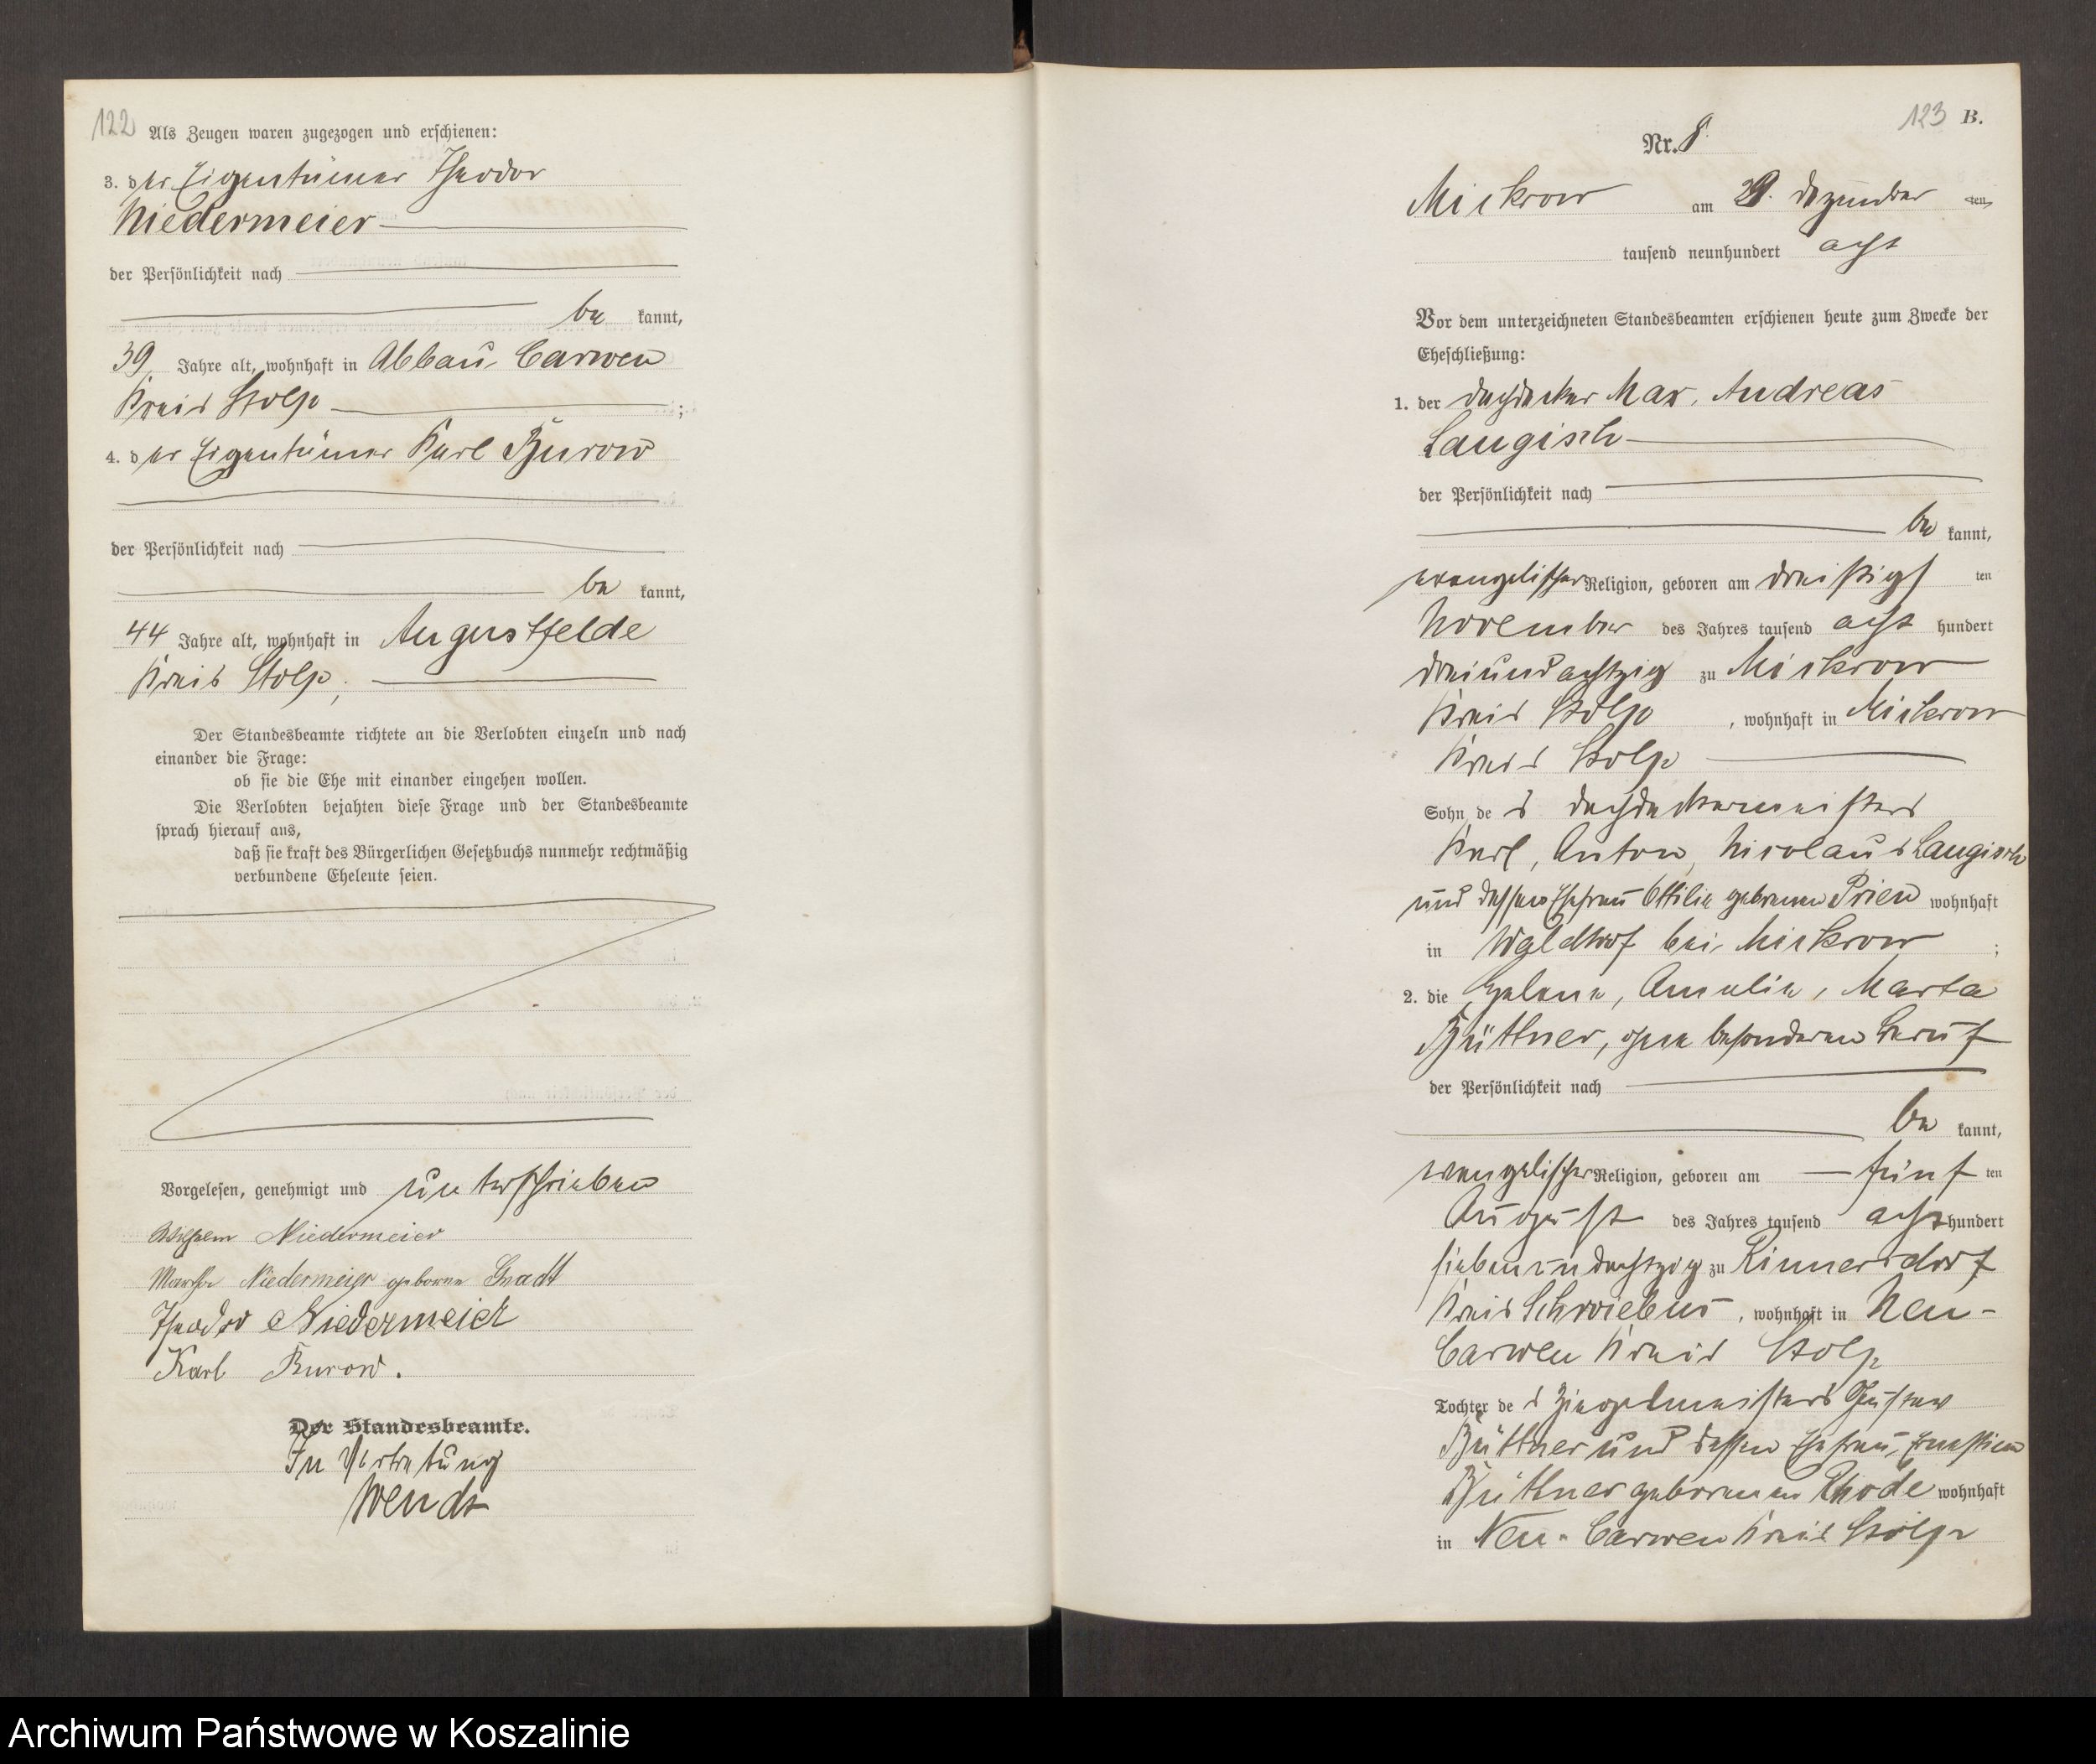 122
Als Zeugen waren zugezogen und erschienen:
3. der Eigentümer Theodor
Niedermeier
der Persönlichkeit nach
be kannt,
39 Jahre alt, wohnhaft in Abbau Carwen
Kreis Stolp ;
4. der Eigentümer Karl Burow
der Persönlichkeit nach
be kannt,
44 Jahre alt, wohnhaft in Augustfelde
Kreis Stolp;
Der Standesbeamte richtete an die Verlobten einzeln und nach
einander die Frage:
ob sie die Ehe mit einander eingehen wollen.
Die Verlobten bejahten diese Frage und der Standesbeamte
sprach hierauf aus,
daß sie kraft des Bürgerlichen Gesetzbuchs nunmehr rechtmäßig
verbundene Eheleute seien.
Vorgelesen, genehmigt und unterschrieben
Wilhelm Niedermeier
Niedermeier geborene
Theodor Niedermeier
Karl Burow.
Der Standesbeamte.
In Vertretung
Wendt
123 B.
Nr. 8
Mickrow am 29. Dezember ten
tausend neunhundert acht
Vor dem unterzeichneten Standesbeamten erschienen heute zum Zwecke der
Eheschließung:
1. der Dachdecker Max, Andreas
Laugisch
der Persönlichkeit nach
be kannt,
evangelischer Religion, geboren am dreißigs ten
November des Jahres tausend acht hundert
dreiundachtzig zu Mickrow
Kreis Stolp , wohnhaft in Mickrow
Kreis Stolp
Sohn des Dachdeckermeisters
Karl, Anton, Nicolaus Laugisch
und dessen Ehefrau Ottilie geborenen Prien wohnhaft
in Waldhof bei Mickrow ;
2. die Helene, Amalie, Marta
Büttner, ohne besonderen Beruf
der Persönlichkeit nach
be kannt,
evangelischer Religion, geboren am fünf ten
August des Jahres tausend acht hundert
siebenundachtzig zu Rinnersdorf
Kreis Schwiebus, wohnhaft in Neu-
Carwen Kreis Stolp
Tochter des Ziegelmeisters Gustav
Büttner und dessen Ehefrau, Ernestine
Büttner geborenen Rhode wohnhaft
in Neu-Carwen Kreis Stolp
Archiwum Państwowe w Koszalinie